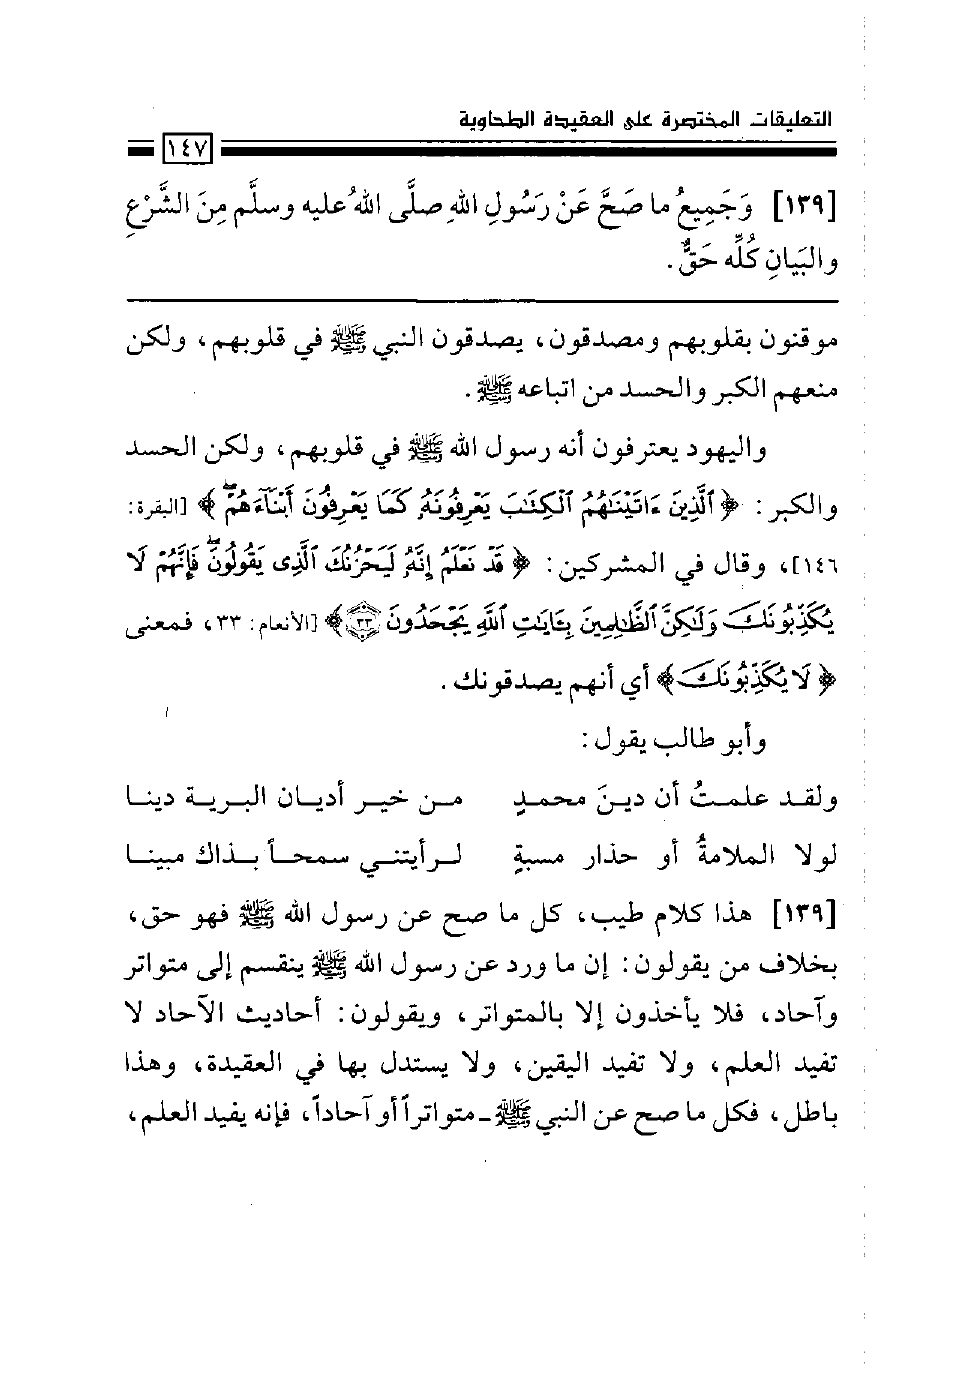 التعليقات المختصرة على العقيدة الطحاوية
١٤٧
[١٣٩] وَجَمِيعُ ما صَحَّ عَنْ رَسُولِ اللهِ صلَّى اللهُ عليه وسلَّم مِنَ الشَّرْعِ
والبَيَانِ كُلُّه حَقٌّ .
موقنون بقلوبهم ومصدقون، يصدقون النبي ﷺ في قلوبهم، ولكن
منعهم الكبر والحسد من اتباعه ﷺ .
واليهود يعترفون أنه رسول الله ﷺ في قلوبهم، ولكن الحسد
والكبر : ﴿ ٱلَّذِينَ ءَاتَيْنَٰهُمُ ٱلْكِتَٰبَ يَعْرِفُونَهُۥ كَمَا يَعْرِفُونَ أَبْنَآءَهُمْ ۖ ﴾ [البقرة:
١٤٦]، وقال في المشركين : ﴿ قَدْ نَعْلَمُ إِنَّهُۥ لَيَحْزُنُكَ ٱلَّذِى يَقُولُونَ ۖ فَإِنَّهُمْ لَا
يُكَذِّبُونَكَ وَلَٰكِنَّ ٱلظَّٰلِمِينَ بِـَٔايَٰتِ ٱللَّهِ يَجْحَدُونَ ٣٣ ﴾ [الأنعام: ٣٣، فمعنى
﴿ لَا يُكَذِّبُونَكَ ﴾ أي أنهم يصدقونك .
وأبو طالب يقول :
ولقد علمتُ أن دينَ محمدٍ من خير أديان البرية دينا
لولا الملامةُ أو حذار مسبةٍ لرأيتني سمحاً بذاك مبينا
[١٣٩] هذا كلام طيب، كل ما صح عن رسول الله ﷺ فهو حق،
بخلاف من يقولون : إن ما ورد عن رسول الله ﷺ ينقسم إلى متواتر
وآحاد، فلا يأخذون إلا بالمتواتر، ويقولون : أحاديث الآحاد لا
تفيد العلم، ولا تفيد اليقين، ولا يستدل بها في العقيدة، وهذا
باطل، فكل ما صح عن النبي ﷺ ـ متواتراً أو آحاداً، فإنه يفيد العلم،